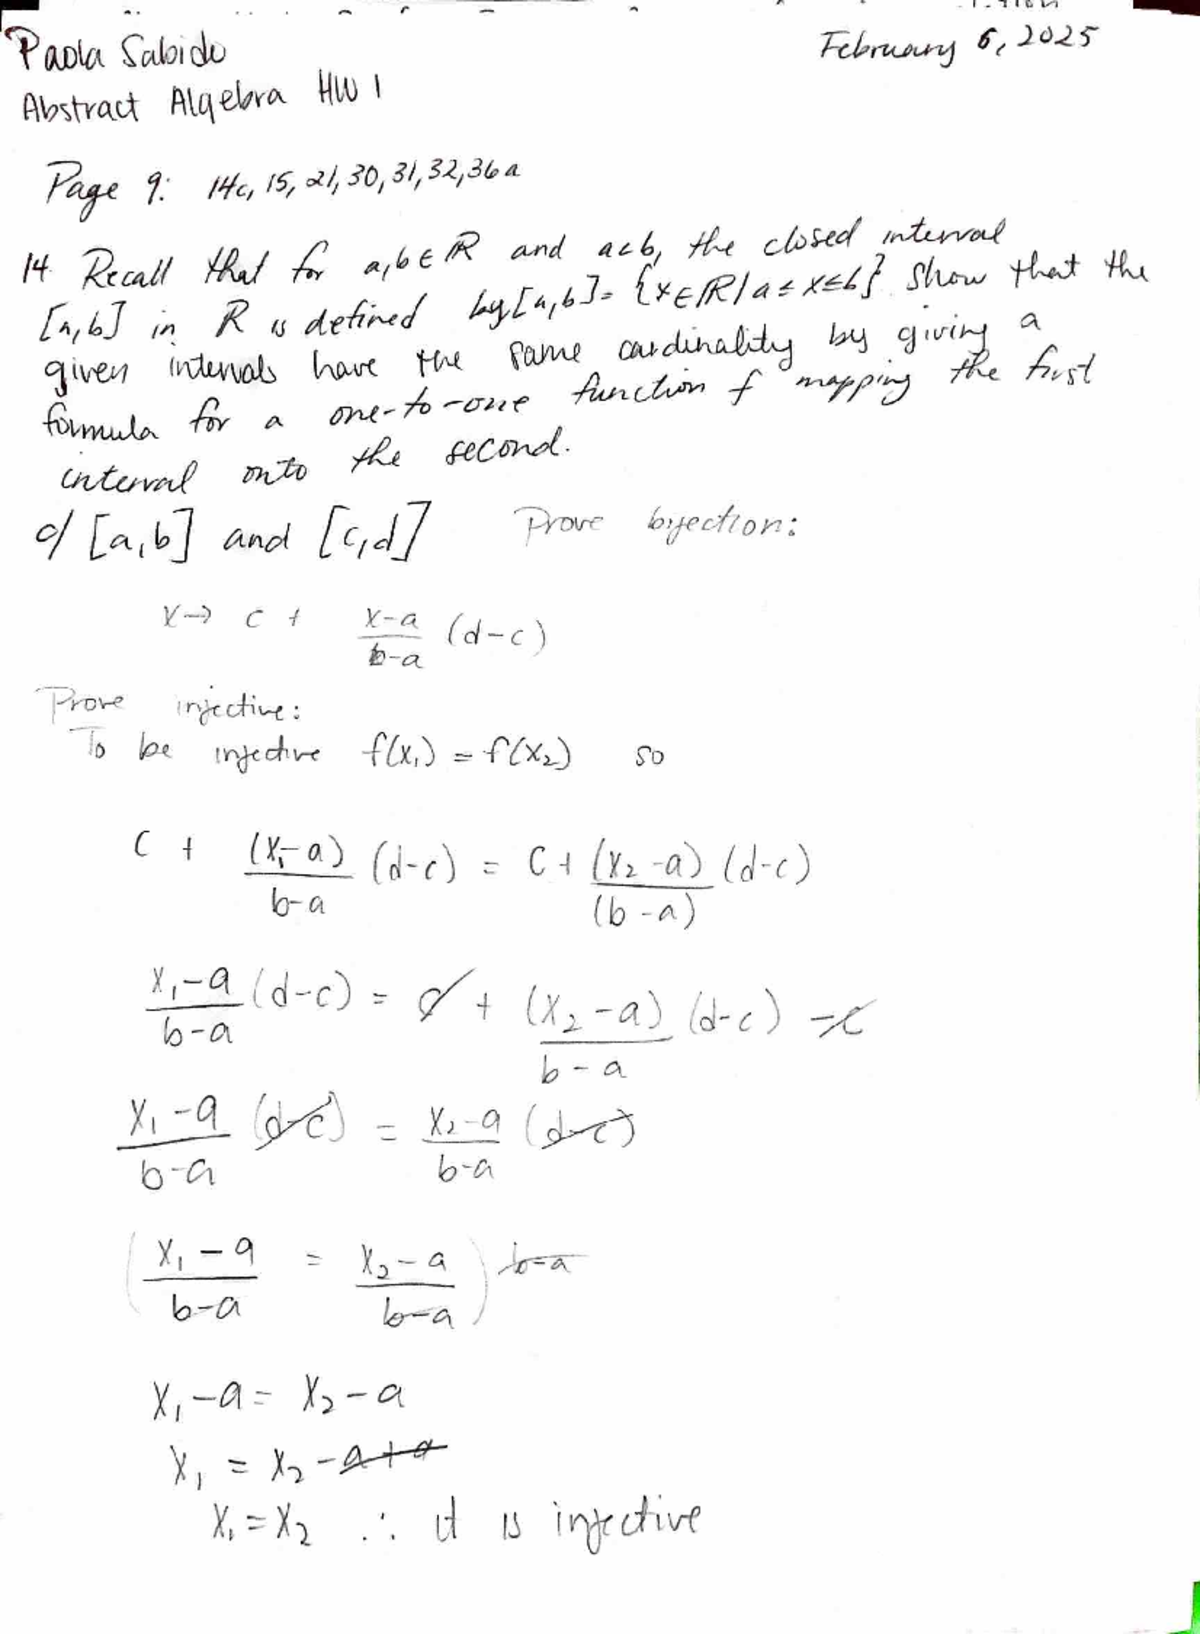 Paola Sabido
February 6, 2025
Abstract Algebra HW 1
Page 9: 14c, 15, 21, 30, 31, 32, 36a
14. Recall that for a,b ∈ ℝ and a<b, the closed interval
[a,b] in R is defined by [a,b] = {x ∈ ℝ | a ≤ x ≤ b}. Show that the
given intervals have the same cardinality by giving a
formula for a one-to-one function f mapping the first
interval onto the second.
c/ [a,b] and [c,d] Prove bijection:
x → c + x-a/b-a (d-c)
Prove injective:
To be injective f(x₁) = f(x₂) so
c + (x₁-a)/b-a (d-c) = c + (x₂-a)/(b-a) (d-c)
x₁-a/b-a (d-c) = c + (x₂-a)/b-a (d-c) -c
x₁-a/b-a (d-c) = x₂-a/b-a (d-c)
( x₁-a/b-a = x₂-a/b-a ) b-a
x₁-a = x₂-a
x₁ = x₂ -a+a
x₁=x₂ ∴ it is injective